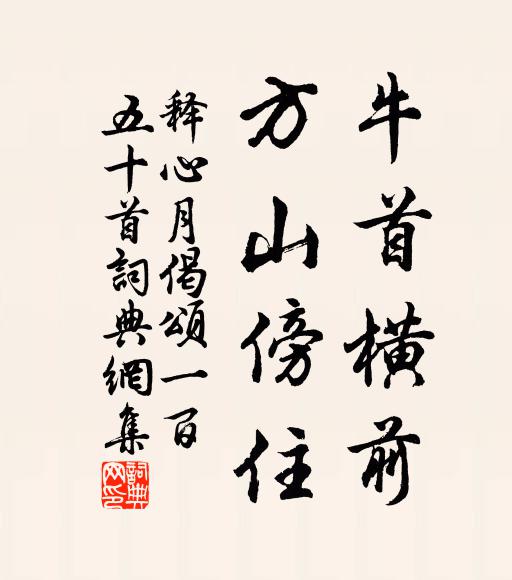 牛首橫前
方山傍住
释心月偈頌一百
五十首詞典網集
詞典網印